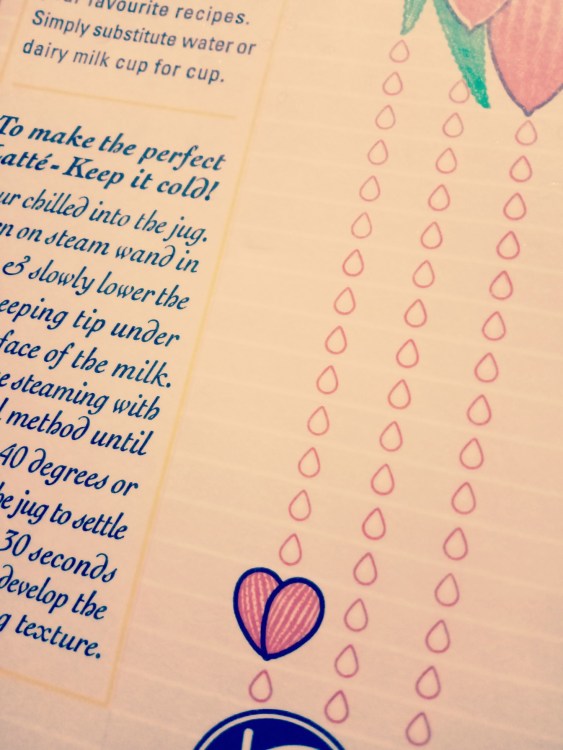 favourite recipes.
Simply substitute water or
dairy milk cup for cup.
To make the perfect
Latté - Keep it cold!
chilled into the jug.
on steam wand in
& slowly lower the
tip under
of the milk.
steaming with
method until
40 degrees or
jug to settle
30 seconds
develop the
texture.